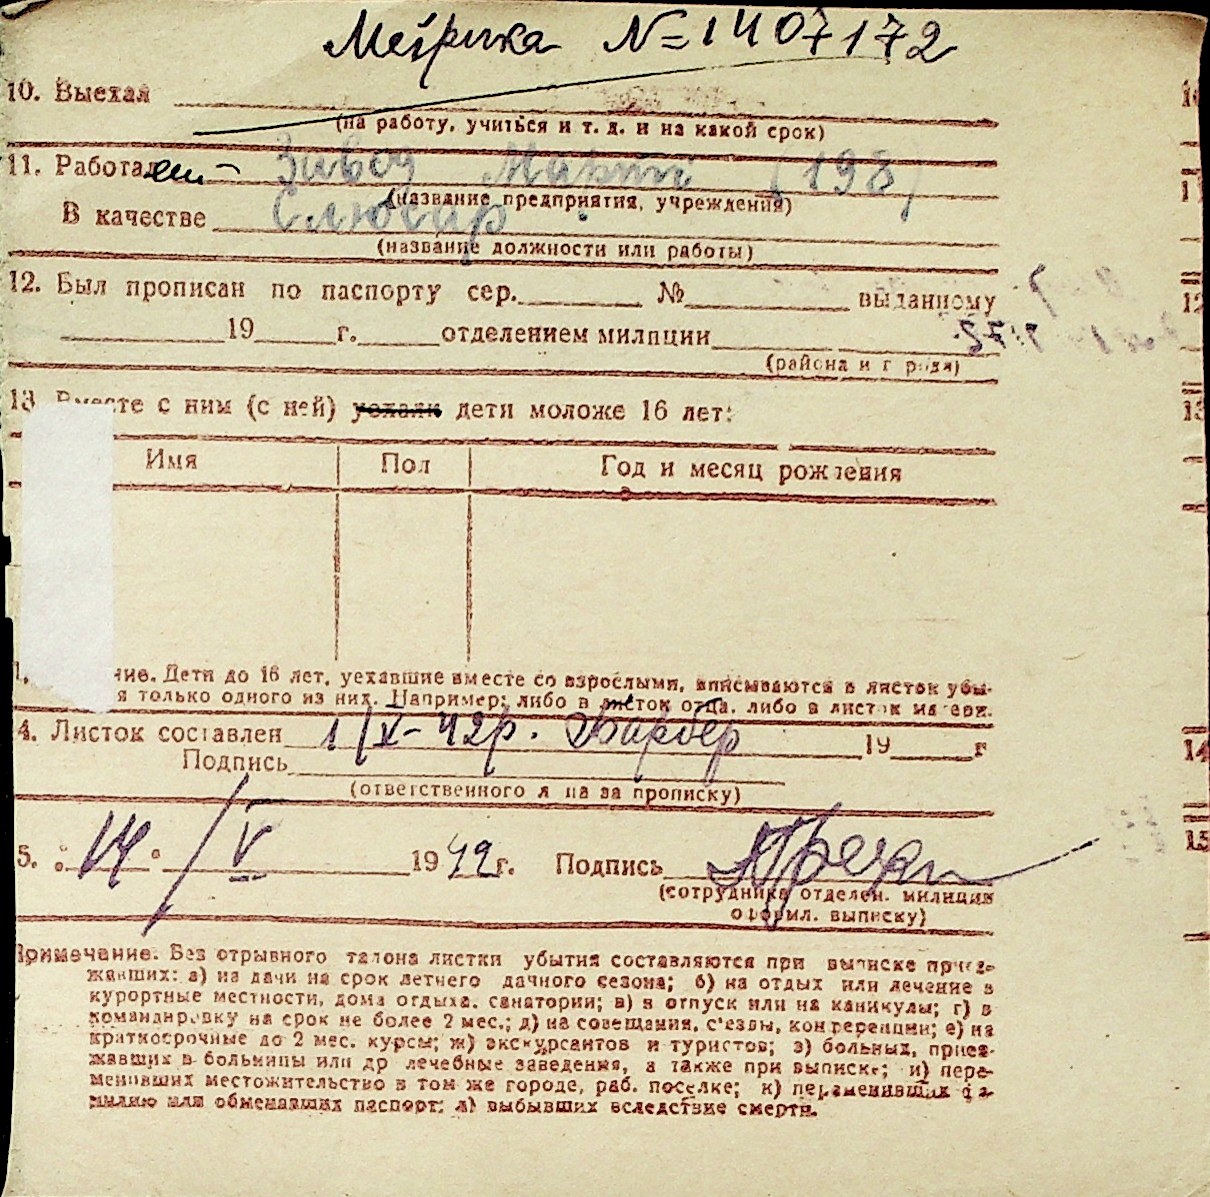 Метрика №=1407172
10. Выехал
(на работу, учиться и т. д. и на какой срок)
11. Работал
Завод Марти (198)
(название предприятия, учреждения)
В качестве Слюсар
(название должности или работы)
12. Был прописан по паспорту сер. № выданному
19 г. отделением милиции
(района и города)
13. Вместе с ним (с ней) уехали дети моложе 16 лет:
Имя Пол Год и месяц рождения
ние. Дети до 16 лет, уехавшие вместе со взрослыми, вписываются в листок убы-
я только одного из них. Например: либо в листок отца, либо в листок матери.
4. Листок составлен 1/V-42р. 19 г
Подпись
(ответственного за прописку)
5. 14 / V 1942г. Подпись
(сотрудника отделен. милиции
оформл. выписку)
Примечание: Без отрывного талона листки убытия составляются при выписке приез-
жавших: а) на дачи на срок летнего дачного сезона; б) на отдых или лечение в
курортные местности, дома отдыха, санатории; в) в отпуск или на каникулы; г) в
командировку на срок не более 2 мес.; д) на совещания, с'езды, конференции; е) на
краткосрочные до 2 мес. курсы; ж) экскурсантов и туристов; з) больных, приез-
жавших в больницы или др лечебные заведения, а также при выписке; и) пере-
менивших местожительство в том же городе, раб. поселке; к) переменивших фа-
милию или обменявших паспорт; л) выбывших вследствие смерти.